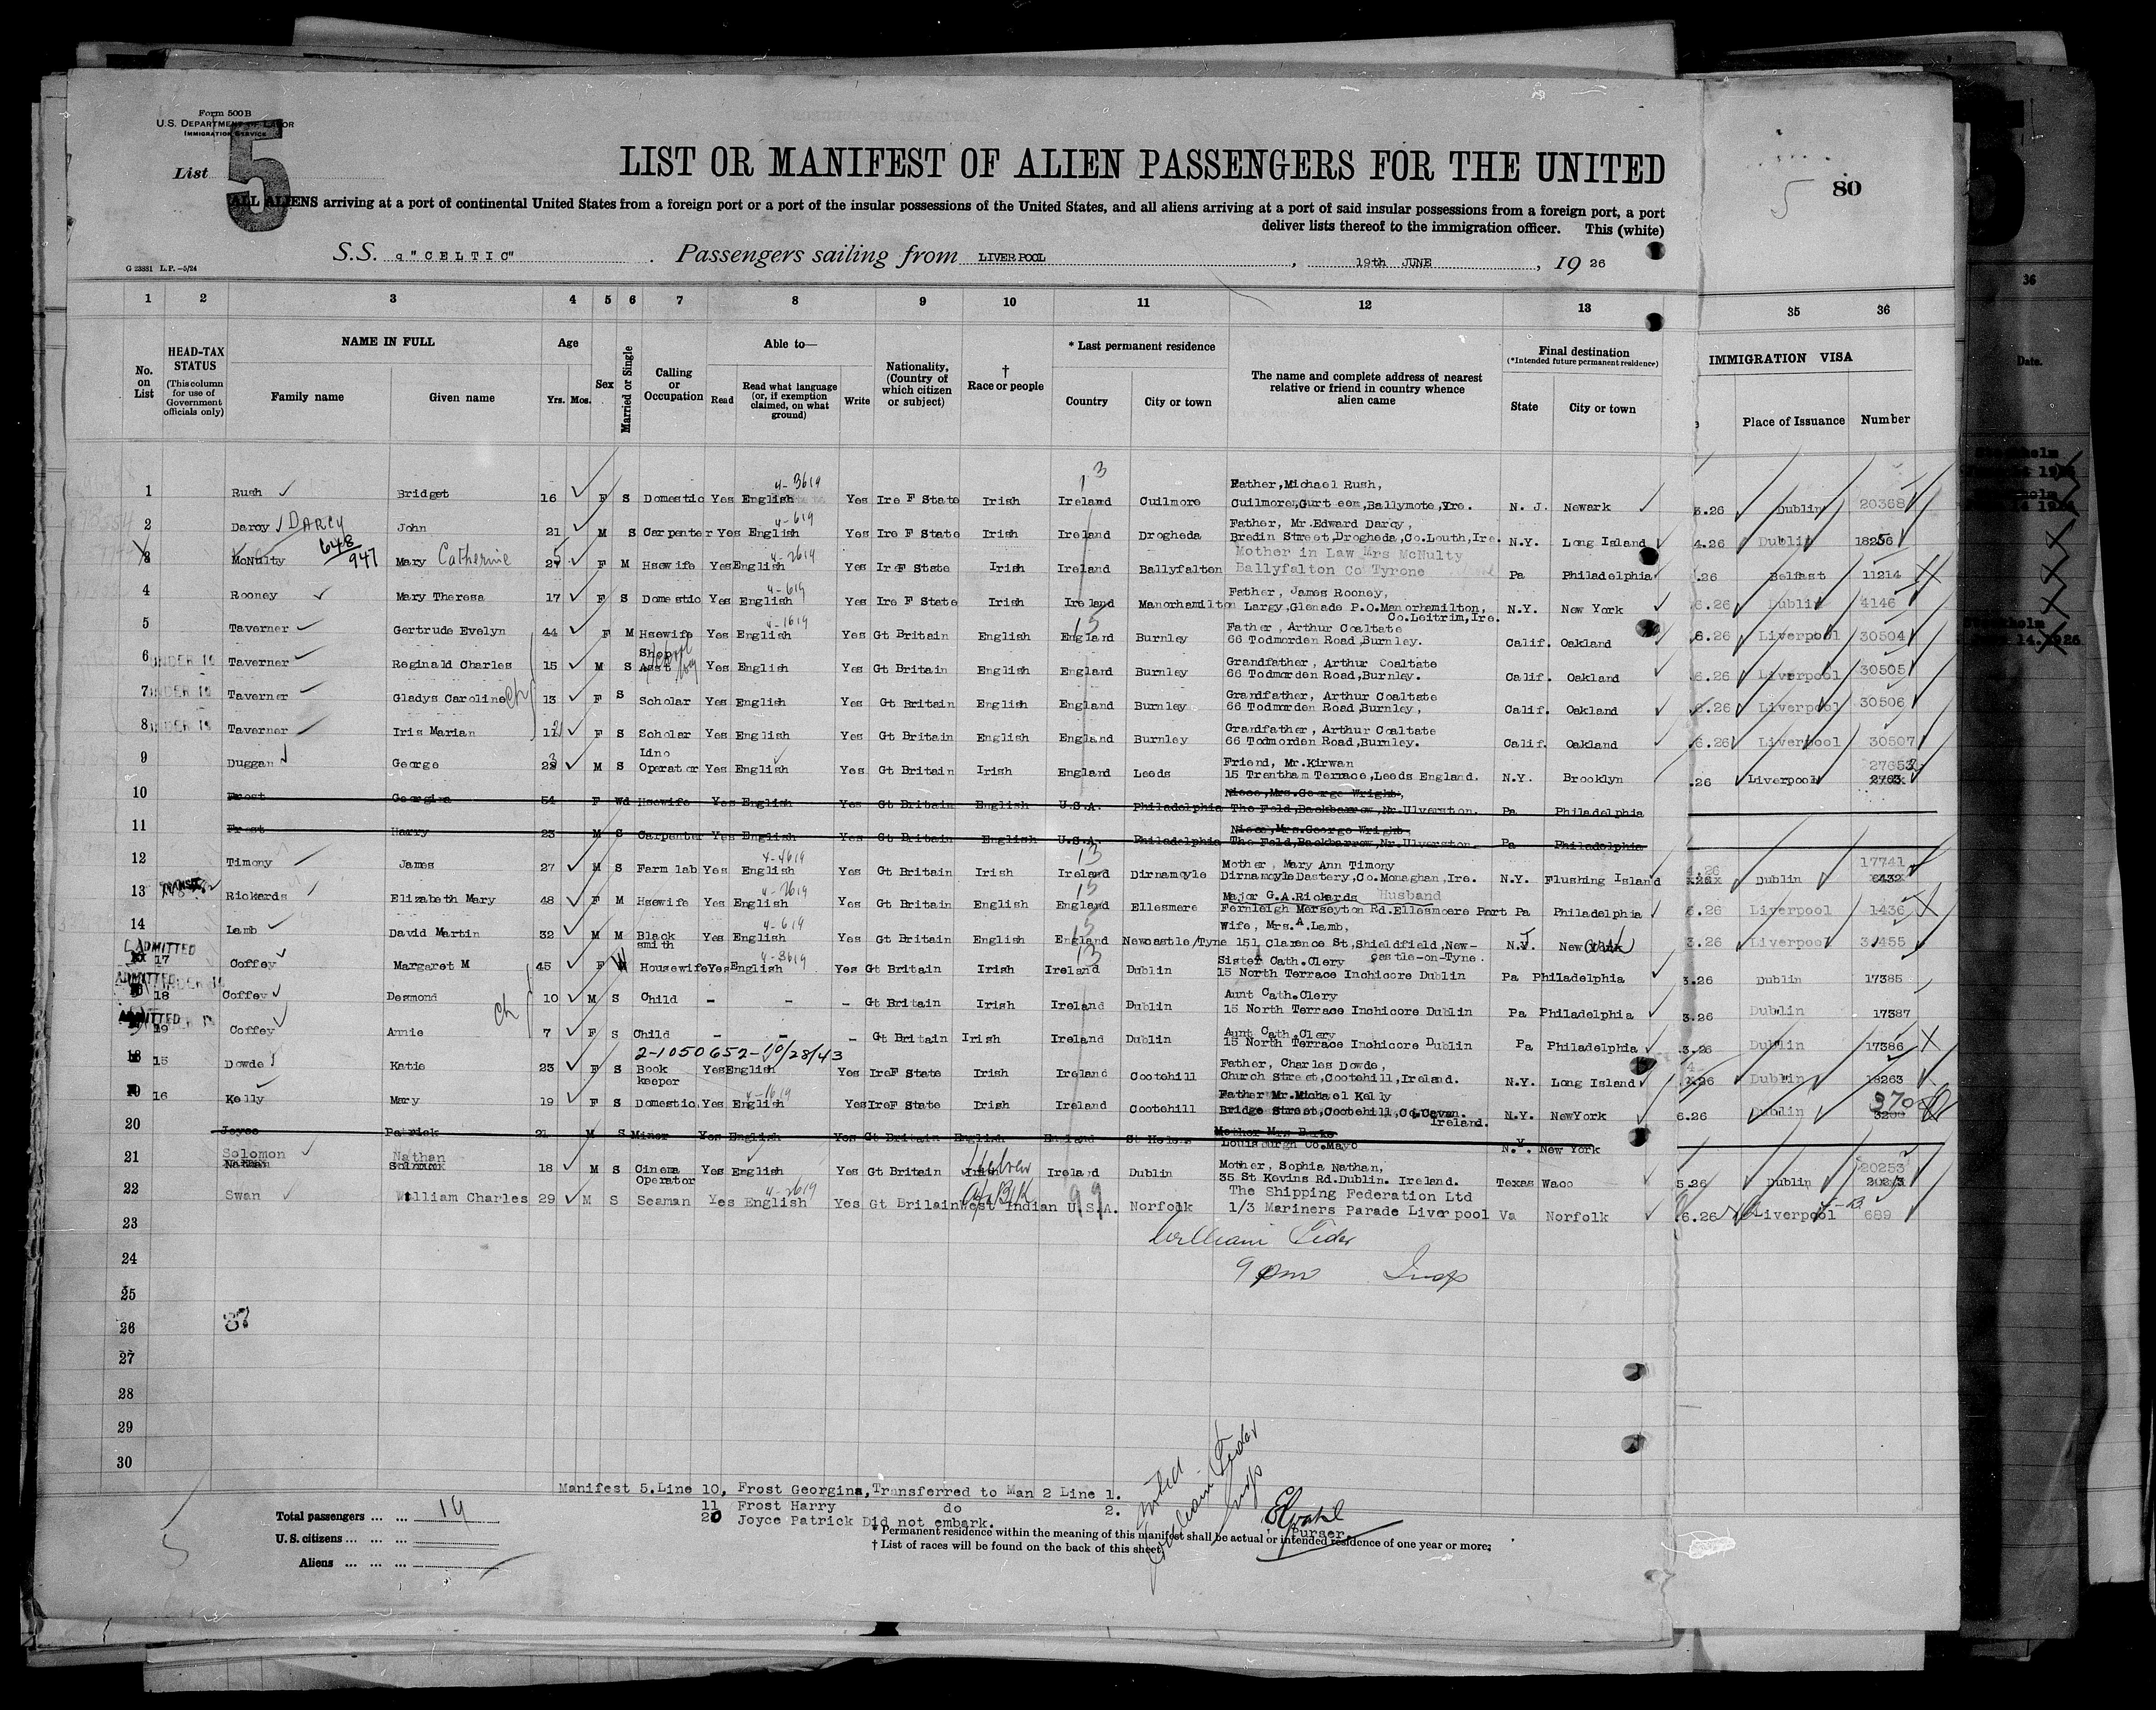 Form 500 B
U.S. DEPARTMENT OF LABOR
IMMIGRATION SERVICE
List 5
LIST OR MANIFEST OF ALIEN PASSENGERS FOR THE UNITED
80
ALL ALIENS arriving at a port of continental United States from a foreign port or a port of the insular possessions of the United States, and all aliens arriving at a port of said insular possessions from a foreign port, a port
deliver lists thereof to the immigration officer. This (white)
S.S. "CELTIC" . Passengers sailing from LIVERPOOL , 19th JUNE , 19 26
G 23881 L.P.—5/24
1 2 3 4 5 6 7 8 9 10 11 12 13 35 36
No. on List
HEAD-TAX STATUS (This column for use of Government officials only)
NAME IN FULL
Family name Given name
Age Yrs. Mos.
Sex
Married or Single
Calling or Occupation
Able to—
Read Read what language (or, if exemption claimed, on what ground) Write
Nationality, (Country of which citizen or subject)
† Race or people
* Last permanent residence
Country City or town
The name and complete address of nearest relative or friend in country whence alien came
Final destination (*Intended future permanent residence)
State City or town
IMMIGRATION VISA
Place of Issuance Number
36
Date.
1 Rush Bridget 16 F S Domestic Yes English 4-3619 Yes Ire F State Irish Ireland Cuilmore Father, Michael Rush, Cuilmore, Ballymote, Ire. N. J. Newark 3.26 Dublin 20368
2 Darcy DARCY John 21 M S Carpenter Yes English 4-619 Yes Ire F State Irish Ireland Drogheda Father, Mr. Edward Darcy, Bredin Street, Drogheda, Co. Louth, Ire. N.Y. Long Island 4.26 Dublin 18256
3 McNulty 648 947 Mary Catherine F M Hsewife Yes English 4-2619 Yes IreF State Irish Ireland Ballyfalton Mother in Law Mrs McNulty Ballyfalton Co Tyrone Pa Philadelphia .26 Belfast 11214
4 Rooney Mary Theresa 17 F S Domestic Yes English 4-619 Yes Ire F State Irish Ireland Manorhamilton Father, James Rooney, Largy, Glenade P.O. Manorhamilton, Co. Leitrim, Ire. N.Y. New York 6.26 Dublin 4146
5 Taverner Gertrude Evelyn 44 F M Hsewife Yes English 4-1619 Yes Gt Britain English England Burnley Father, Arthur Coaltate 66 Todmorden Road, Burnley. Calif. Oakland 6.26 Liverpool 30504
6 UNDER 16 Taverner Reginald Charles 15 M S Shop Asst Yes English Yes Gt Britain English England Burnley Grandfather, Arthur Coaltate 66 Todmorden Road, Burnley. Calif. Oakland 6.26 Liverpool 30505
7 UNDER 16 Taverner Gladys Caroline 13 F S Scholar Yes English Yes Gt Britain English England Burnley Grandfather, Arthur Coaltate 66 Todmorden Road, Burnley, Calif. Oakland 6.26 Liverpool 30506
8 UNDER 16 Taverner Iris Marian F S Scholar Yes English Yes Gt Britain English England Burnley Grandfather, Arthur Coaltate 66 Todmorden Road, Burnley. Calif. Oakland 6.26 Liverpool 30507
9 Duggan George M S Lino Operator Yes English Yes Gt Britain Irish England Leeds Friend, Mr. Kirwan 15 Trentham Terrace, Leeds England. N.Y. Brooklyn .26 Liverpool 27653
10 Frost Georgina 54 F Wd Hsewife Yes English Yes Gt Britain English U.S.A. Philadelphia Niece, Mrs. George Wright, The Fold, Backbarrow, Nr. Ulverston. Pa Philadelphia
11 Frost Harry 23 M S Carpenter Yes English Yes Gt Britain English U.S.A. Philadelphia Niece, Mrs. George Wright The Fold, Backbarrow, Nr. Ulverston. Pa Philadelphia
12 Timony James 27 M S Farm lab Yes English 4-4619 Yes Gt Britain Irish Ireland Dirnamoyle Mother, Mary Ann Timony Dirnamoyle Dastery, Co. Monaghan, Ire. N.Y. Flushing Island 4.26 Dublin 17741 6432
13 TRANSIT Rickards Elizabeth Mary 48 F M Hsewife Yes English 4-2619 Yes Gt Britain English England Ellesmere Major G.A. Rickards Husband Fernleigh Merseyton Rd. Ellesmoere Port Pa Philadelphia 6.26 Liverpool 1436
14 Lamb David Martin 32 M M Black smith Yes English 4-619 Yes Gt Britain English England Newcastle/Tyne Wife, Mrs. A Lamb, 151 Clarence St, Shieldfield, New-castle-on-Tyne. New York 3.26 Liverpool 31455
ADMITTED 17 Coffey Margaret M 45 F W Housewife Yes English 4-3619 Yes Gt Britain Irish Ireland Dublin Sister Cath. Clery 15 North Terrace Inchicore Dublin Pa Philadelphia 3.26 Dublin 17385
ADMITTED UNDER 16 18 Coffey Desmond 10 M S Child - - - Gt Britain Irish Ireland Dublin Aunt Cath. Clery 15 North Terrace Inchicore Dublin Pa Philadelphia 3.26 Dublin 17387
ADMITTED UNDER 16 19 Coffey Annie 7 F S Child - - - Gt Britain Irish Ireland Dublin Aunt Cath. Clery 15 North Terrace Inchicore Dublin Pa Philadelphia 3.26 Dublin 17386
2-1050652-10/28/43
18 15 Dowde Katie 23 F S Book keeper Yes English Yes IreF State Irish Ireland Cootehill Father, Charles Dowde, Church Street, Cootehill, Ireland. N.Y. Long Island 4.26 Dublin 18263
19 16 Kelly Mary 19 F S Domestic Yes English 4-1619 Yes IreF State Irish Ireland Cootehill Father Mr. Michael Kelly Bridge Street, Cootehill, Co. Cavan. Ireland. N.Y. NewYork 6.26 Dublin
20 Joyce Patrick 21 M S Miner Yes English Yes Gt Britain English England St Helens Mother Mrs Burke Louisburgh Co. Mayo N.Y. New York
21 Solomon Nathan 18 M S Cinema Operator Yes English Yes Gt Britain Irish Hebrew Ireland Dublin Mother, Sophia Nathan, 35 St Kevins Rd. Dublin. Ireland. Texas Waco 5.26 Dublin 20253
22 Swan William Charles 29 M S Seaman Yes English 4-2619 Yes Gt Brilain West Indian Af. Blk U.S.A. 99 Norfolk The Shipping Federation Ltd 1/3 Mariners Parade Liverpool Va Norfolk 6.26 Liverpool 689
23
William
24
9 pm Insp
25
26 37
27
28
29
30
Manifest 5. Line 10, Frost Georgina, Transferred to Man 2 Line 1.
11 Frost Harry do 2.
20 Joyce Patrick Did not embark.
Total passengers ... ... 19
U.S. citizens ... ... ...
Aliens ... ... ...
Purser
* Permanent residence within the meaning of this manifest shall be actual or intended residence of one year or more;
† List of races will be found on the back of this sheet.